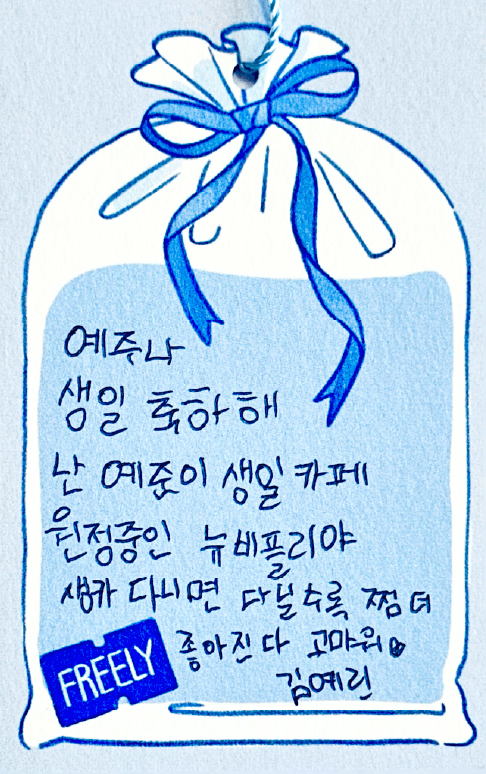 예주나
생일 축하해
난 예준이 생일 카페
원정중인 뉴비플리야
생카 다니면 다닐수록 찜 더
좋아진다 고마워
FREELY
김예린